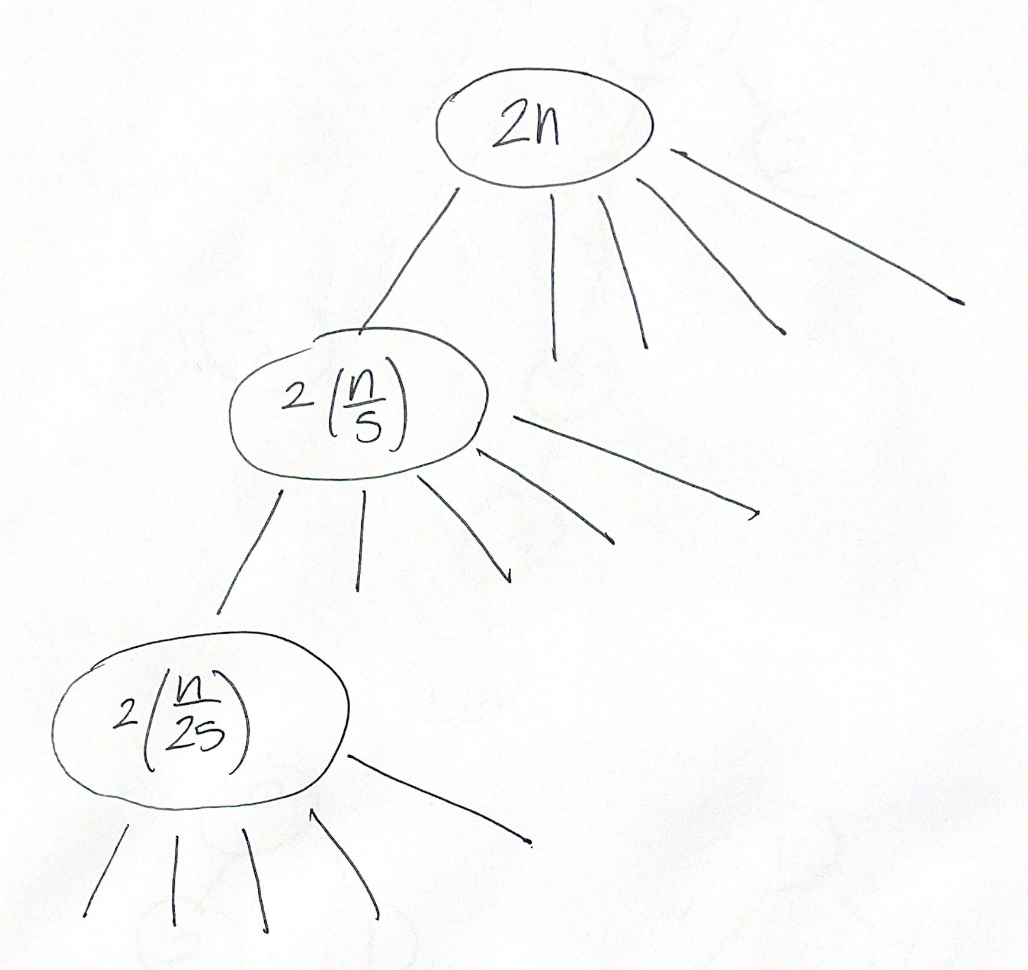 2n
2(n/5)
2(n/25)